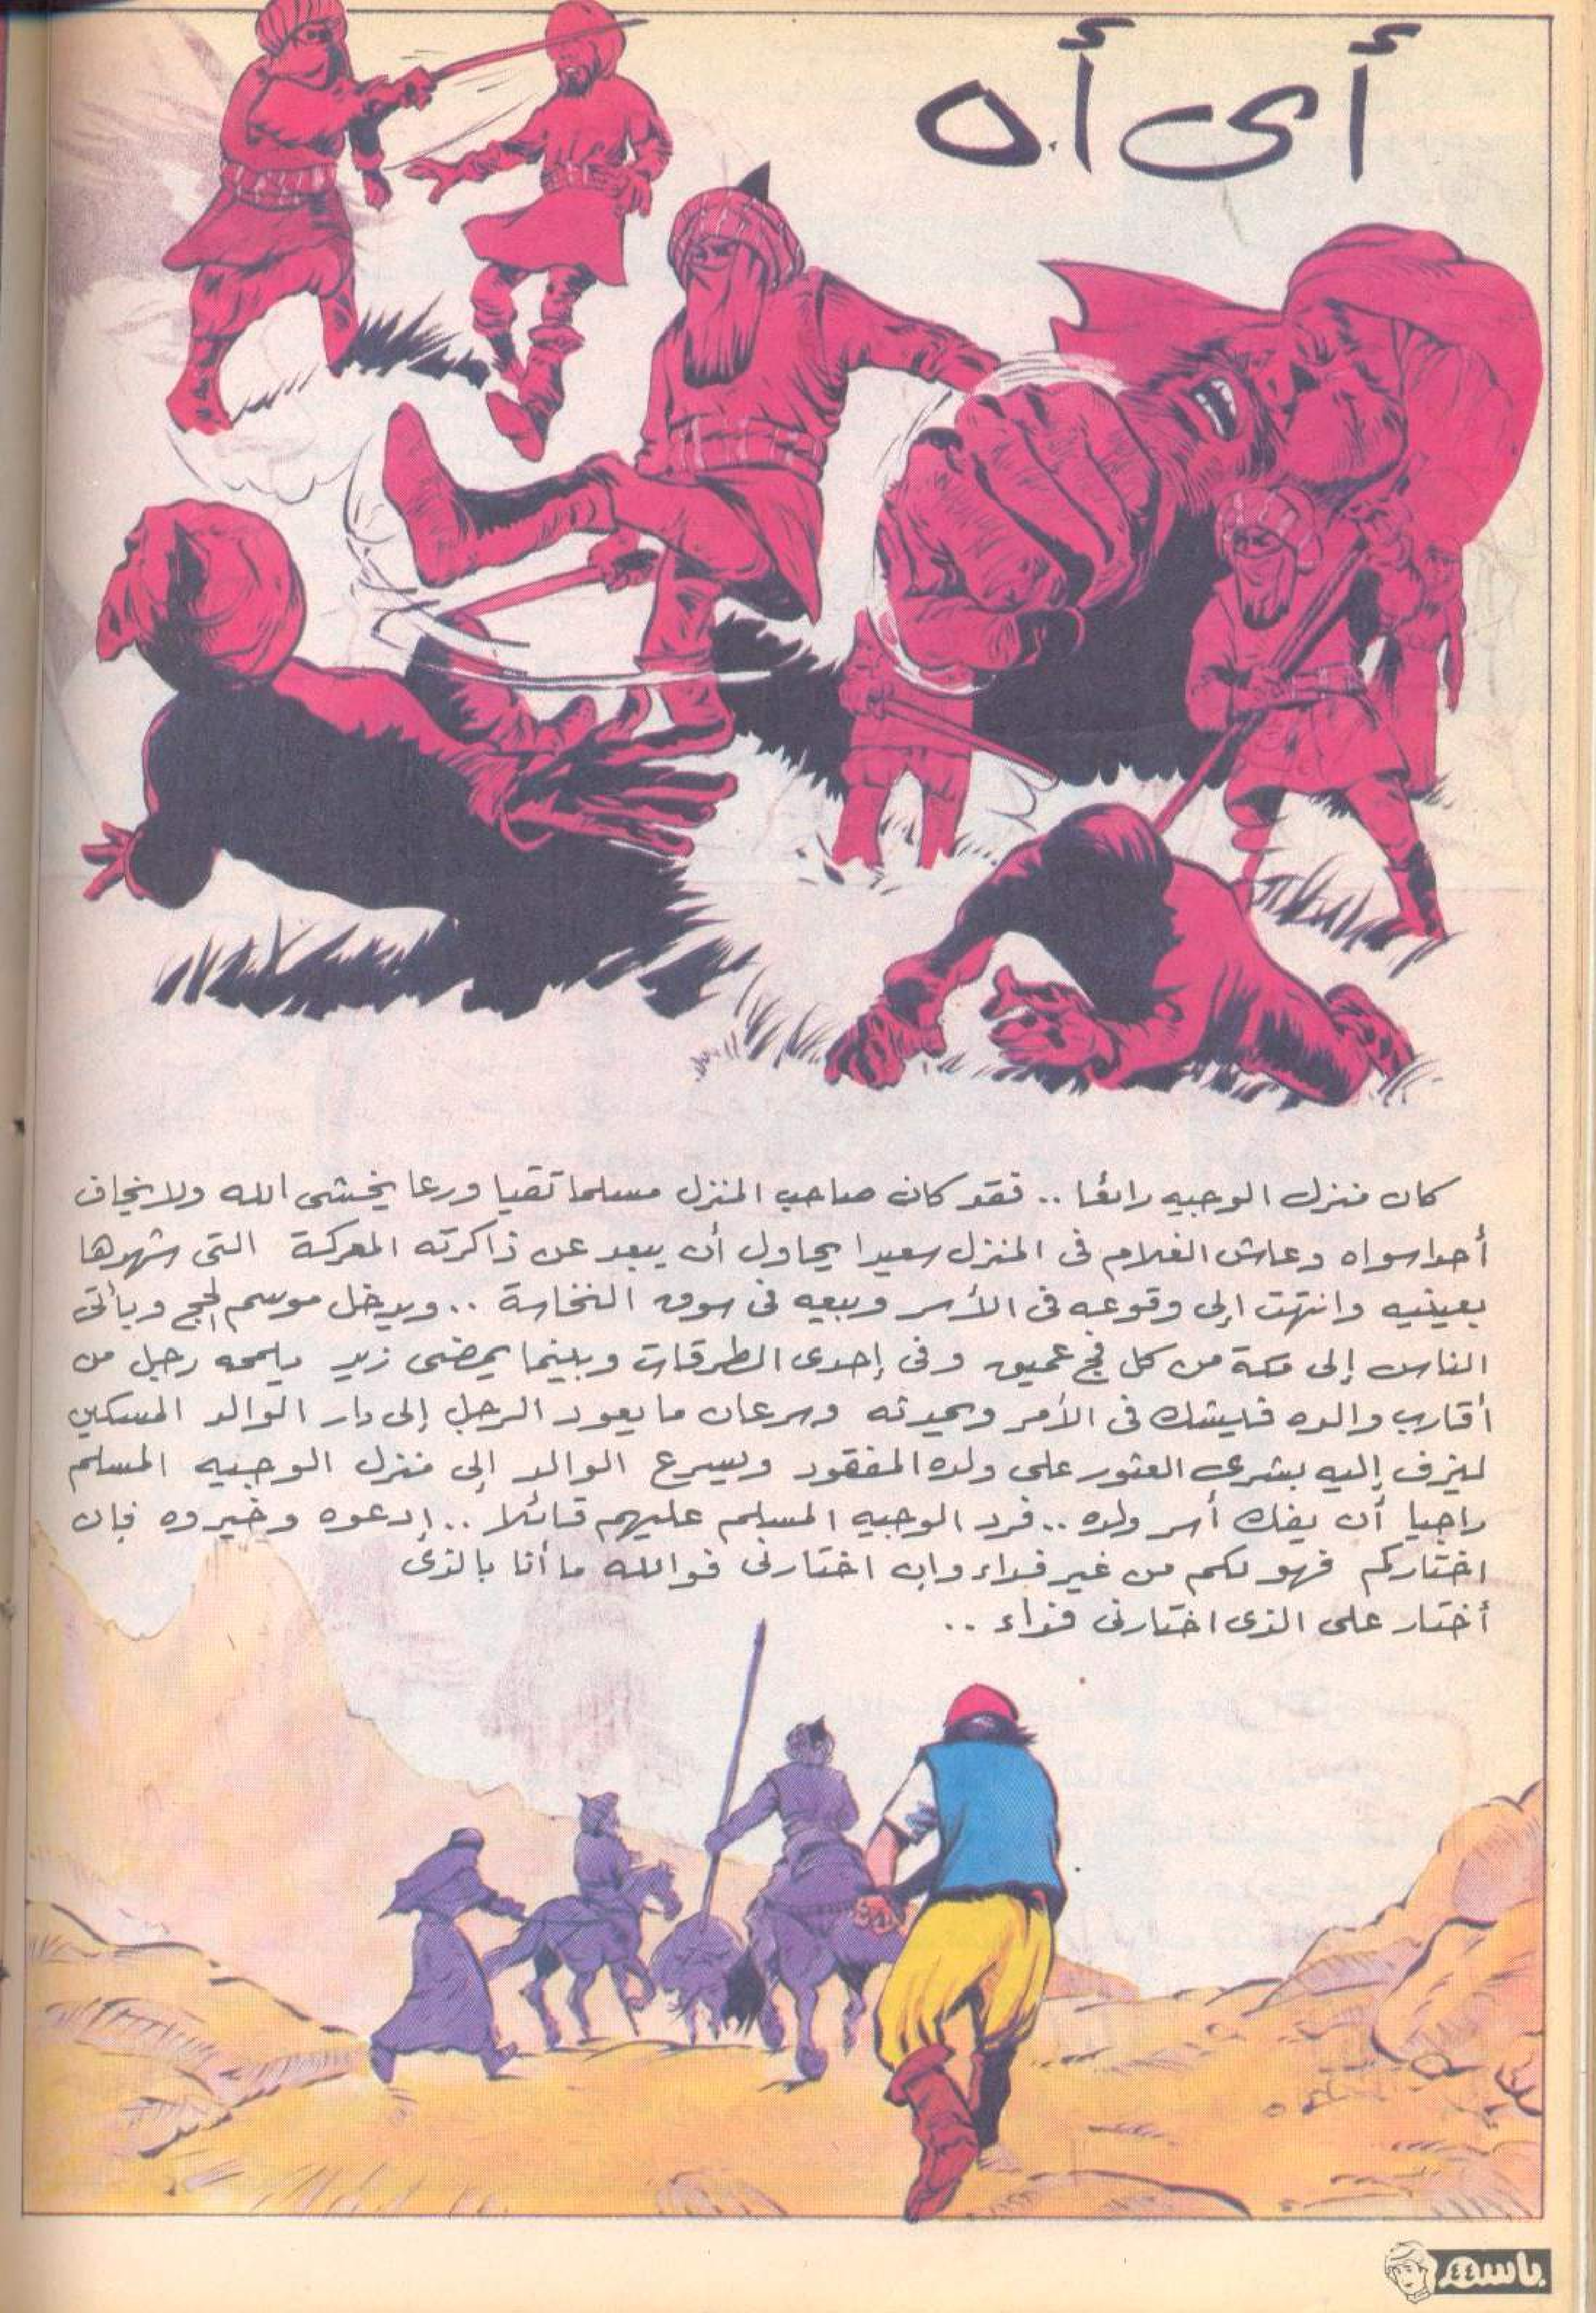 أى أ.ه
كان منزل الوجيه رائعًا .. فقد كان صاحب المنزل مسلما تقيا ورعا يخشى الله ولا يخاف
أحدا سواه وعاش الغلام فى المنزل سعيدا يحاول أن يبعد عن ذاكرته المعركة التى شهدها
بعينيه وانتهت إلى وقوعه فى الأسر وبيعه فى سوق النخاسة .. ويدخل موسم الحج ويأتى
الناس إلى مكة من كل فج عميق وفى إحدى الطرقات وبينما يمضى زيد يلمحه رجل من
أقارب والده فيشك فى الأمر ويحدثه وسرعان ما يعود الرجل إلى دار الوالد المسكين
ليزف إليه بشرى العثور على ولده المفقود ويسرع الوالد إلى منزل الوجيه المسلم
راجيا أن يفك أسر ولده .. فرد الوجيه المسلم عليهم قائلا .. إدعوه وخيروه فإن
اختاركم فهو لكم من غير فداء وإن اختارنى فوالله ما أنا بالذى
أختار على الذى اختارنى فداء ..
باسم ٤٤